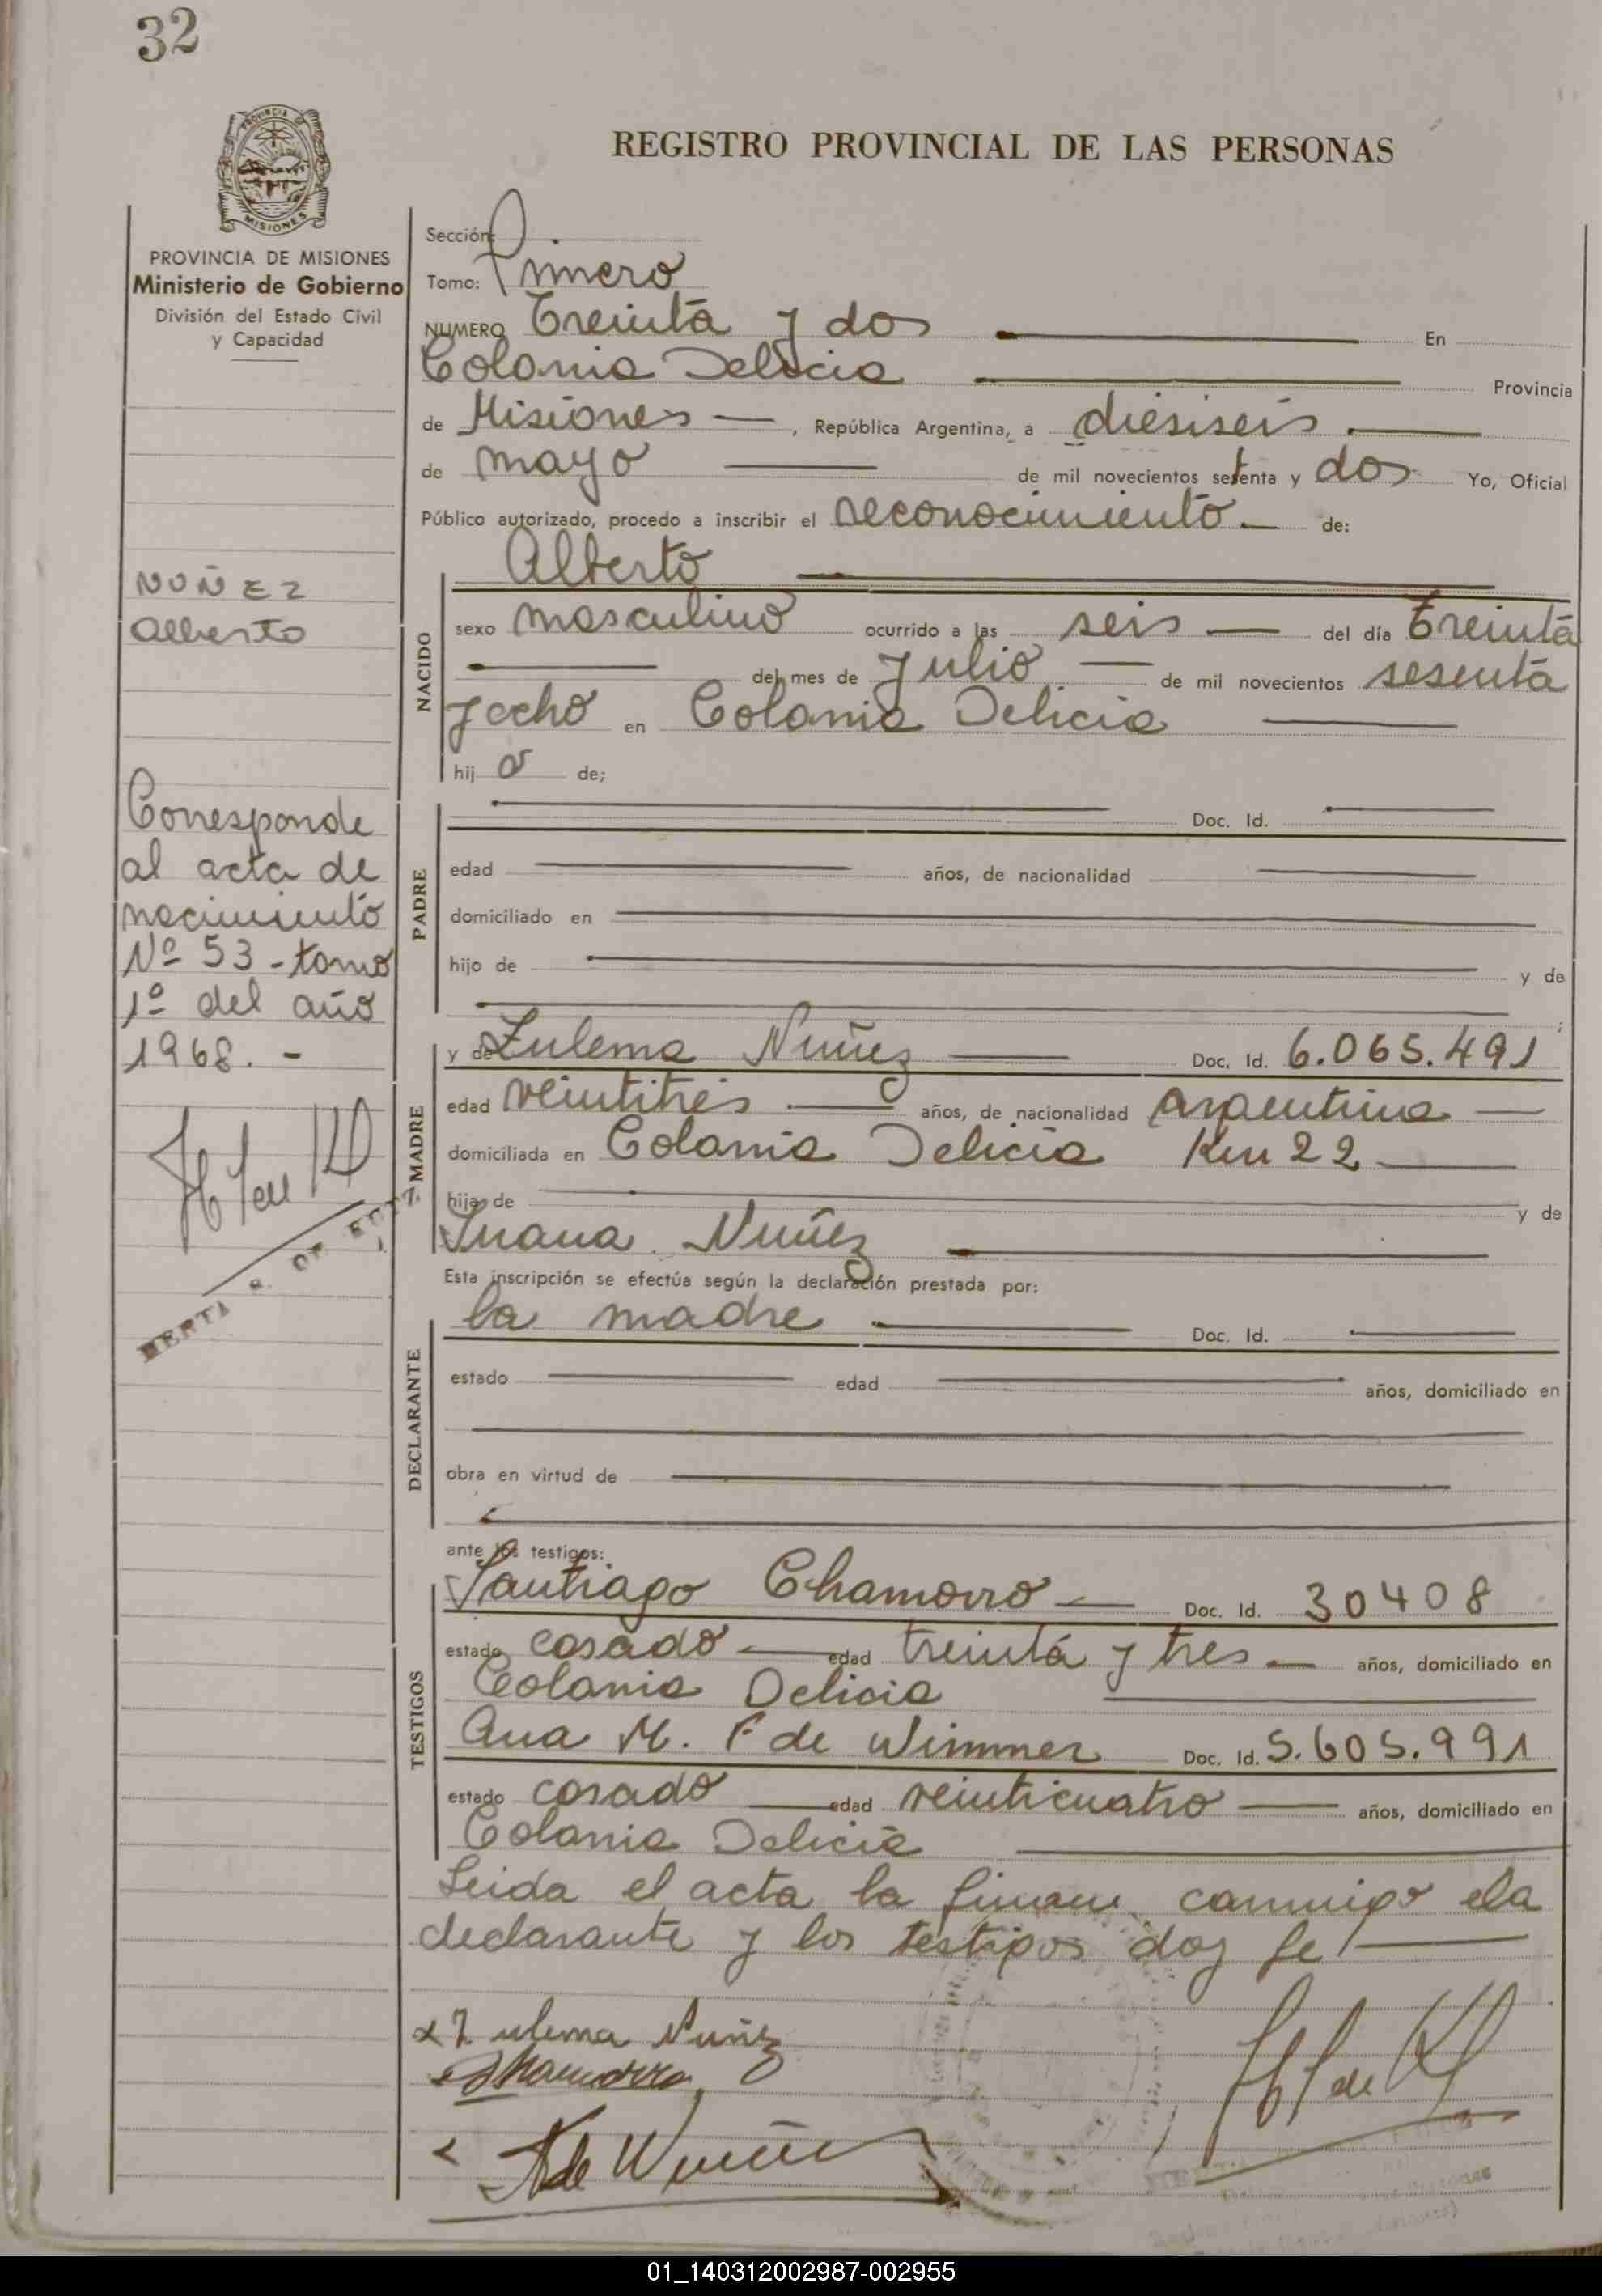 32
PROVINCIA DE
MISIONES
REGISTRO PROVINCIAL DE LAS PERSONAS
PROVINCIA DE MISIONES
Ministerio de Gobierno
División del Estado Civil
y Capacidad
Sección:
Tomo: Primero
NUMERO Treinta y dos En
Colonia Delicia Provincia
de Misiones, República Argentina, a diesiseis
de mayo de mil novecientos setenta y dos Yo, Oficial
Público autorizado, procedo a inscribir el reconocimiento de:
Alberto
NUÑEZ
Alberto
NACIDO
sexo masculino ocurrido a las seis del día Treinta
del mes de Julio de mil novecientos sesenta
y ocho en Colonia Delicia
hij o de;
Corresponde
al acta de
nacimiento
Nº 53 - tomo
1º del año
1968. -
PADRE
Doc. Id.
edad años, de nacionalidad
domiciliado en
hijo de y de
;
MADRE
y de Zulema Nuñez Doc. Id. 6.065.491
edad veintitrés años, de nacionalidad argentina
domiciliada en Colonia Delicia Km 22
hija de y de
Juana Nuñez
Esta inscripción se efectúa según la declaración prestada por:
DECLARANTE
la madre Doc. Id.
estado edad años, domiciliado en
obra en virtud de
ante los testigos:
TESTIGOS
Santiago Chamorro Doc. Id. 30408
estado casado edad treinta y tres años, domiciliado en
Colonia Delicia
Ana M. F de Wimmer Doc. Id. 5.605.991
estado casado edad veinticuatro años, domiciliado en
Colonia Delicia
Leida el acta la firman conmigo la
declarante y los testigos doy fe
Zulema Nuñez
Chamorro
de Wimmer
01_140312002987-002955